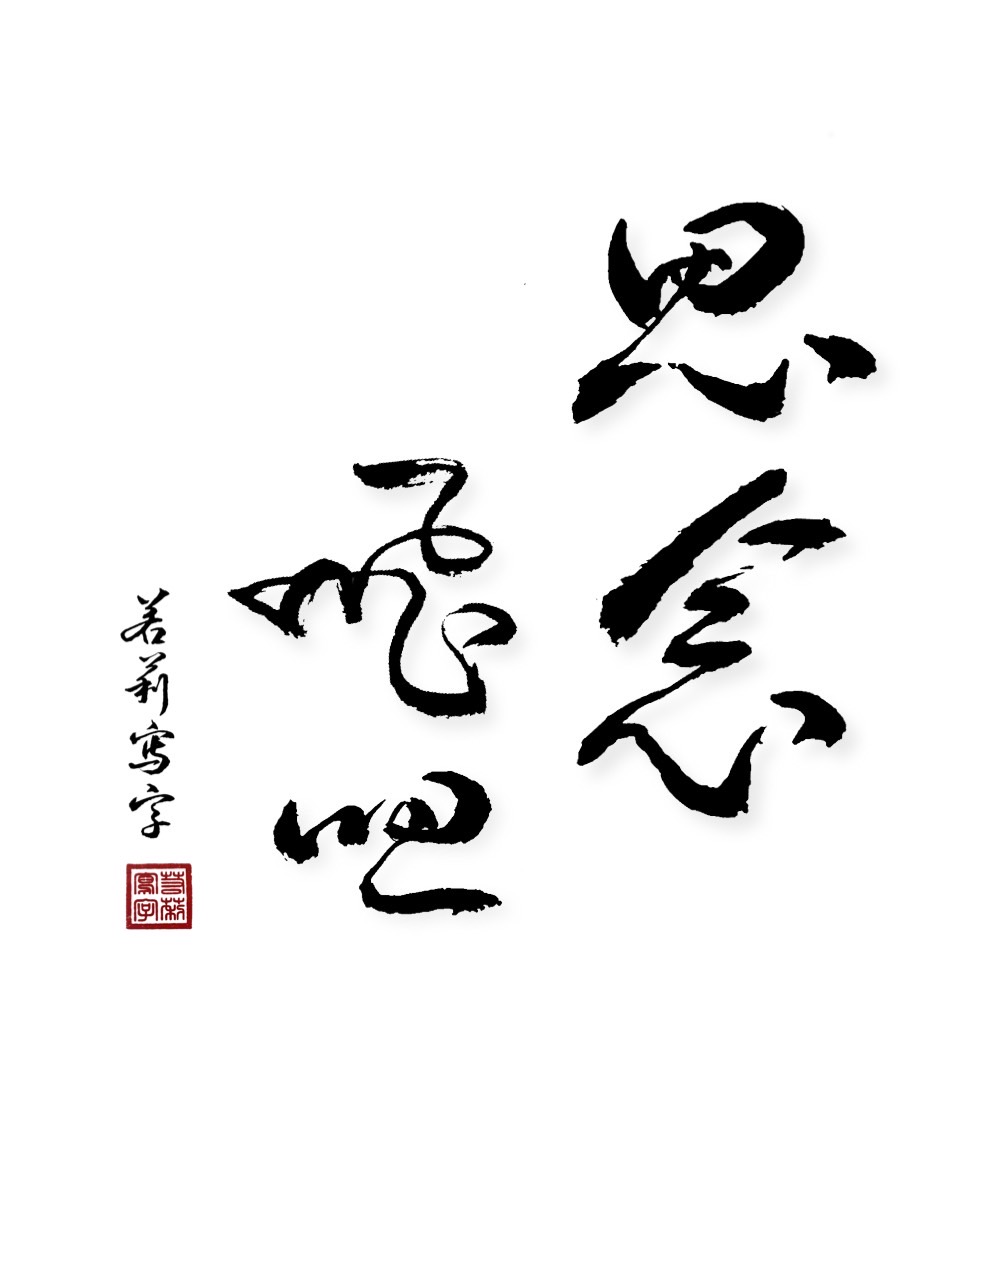 思念
飛吧
若莉寫字
若莉
寫字